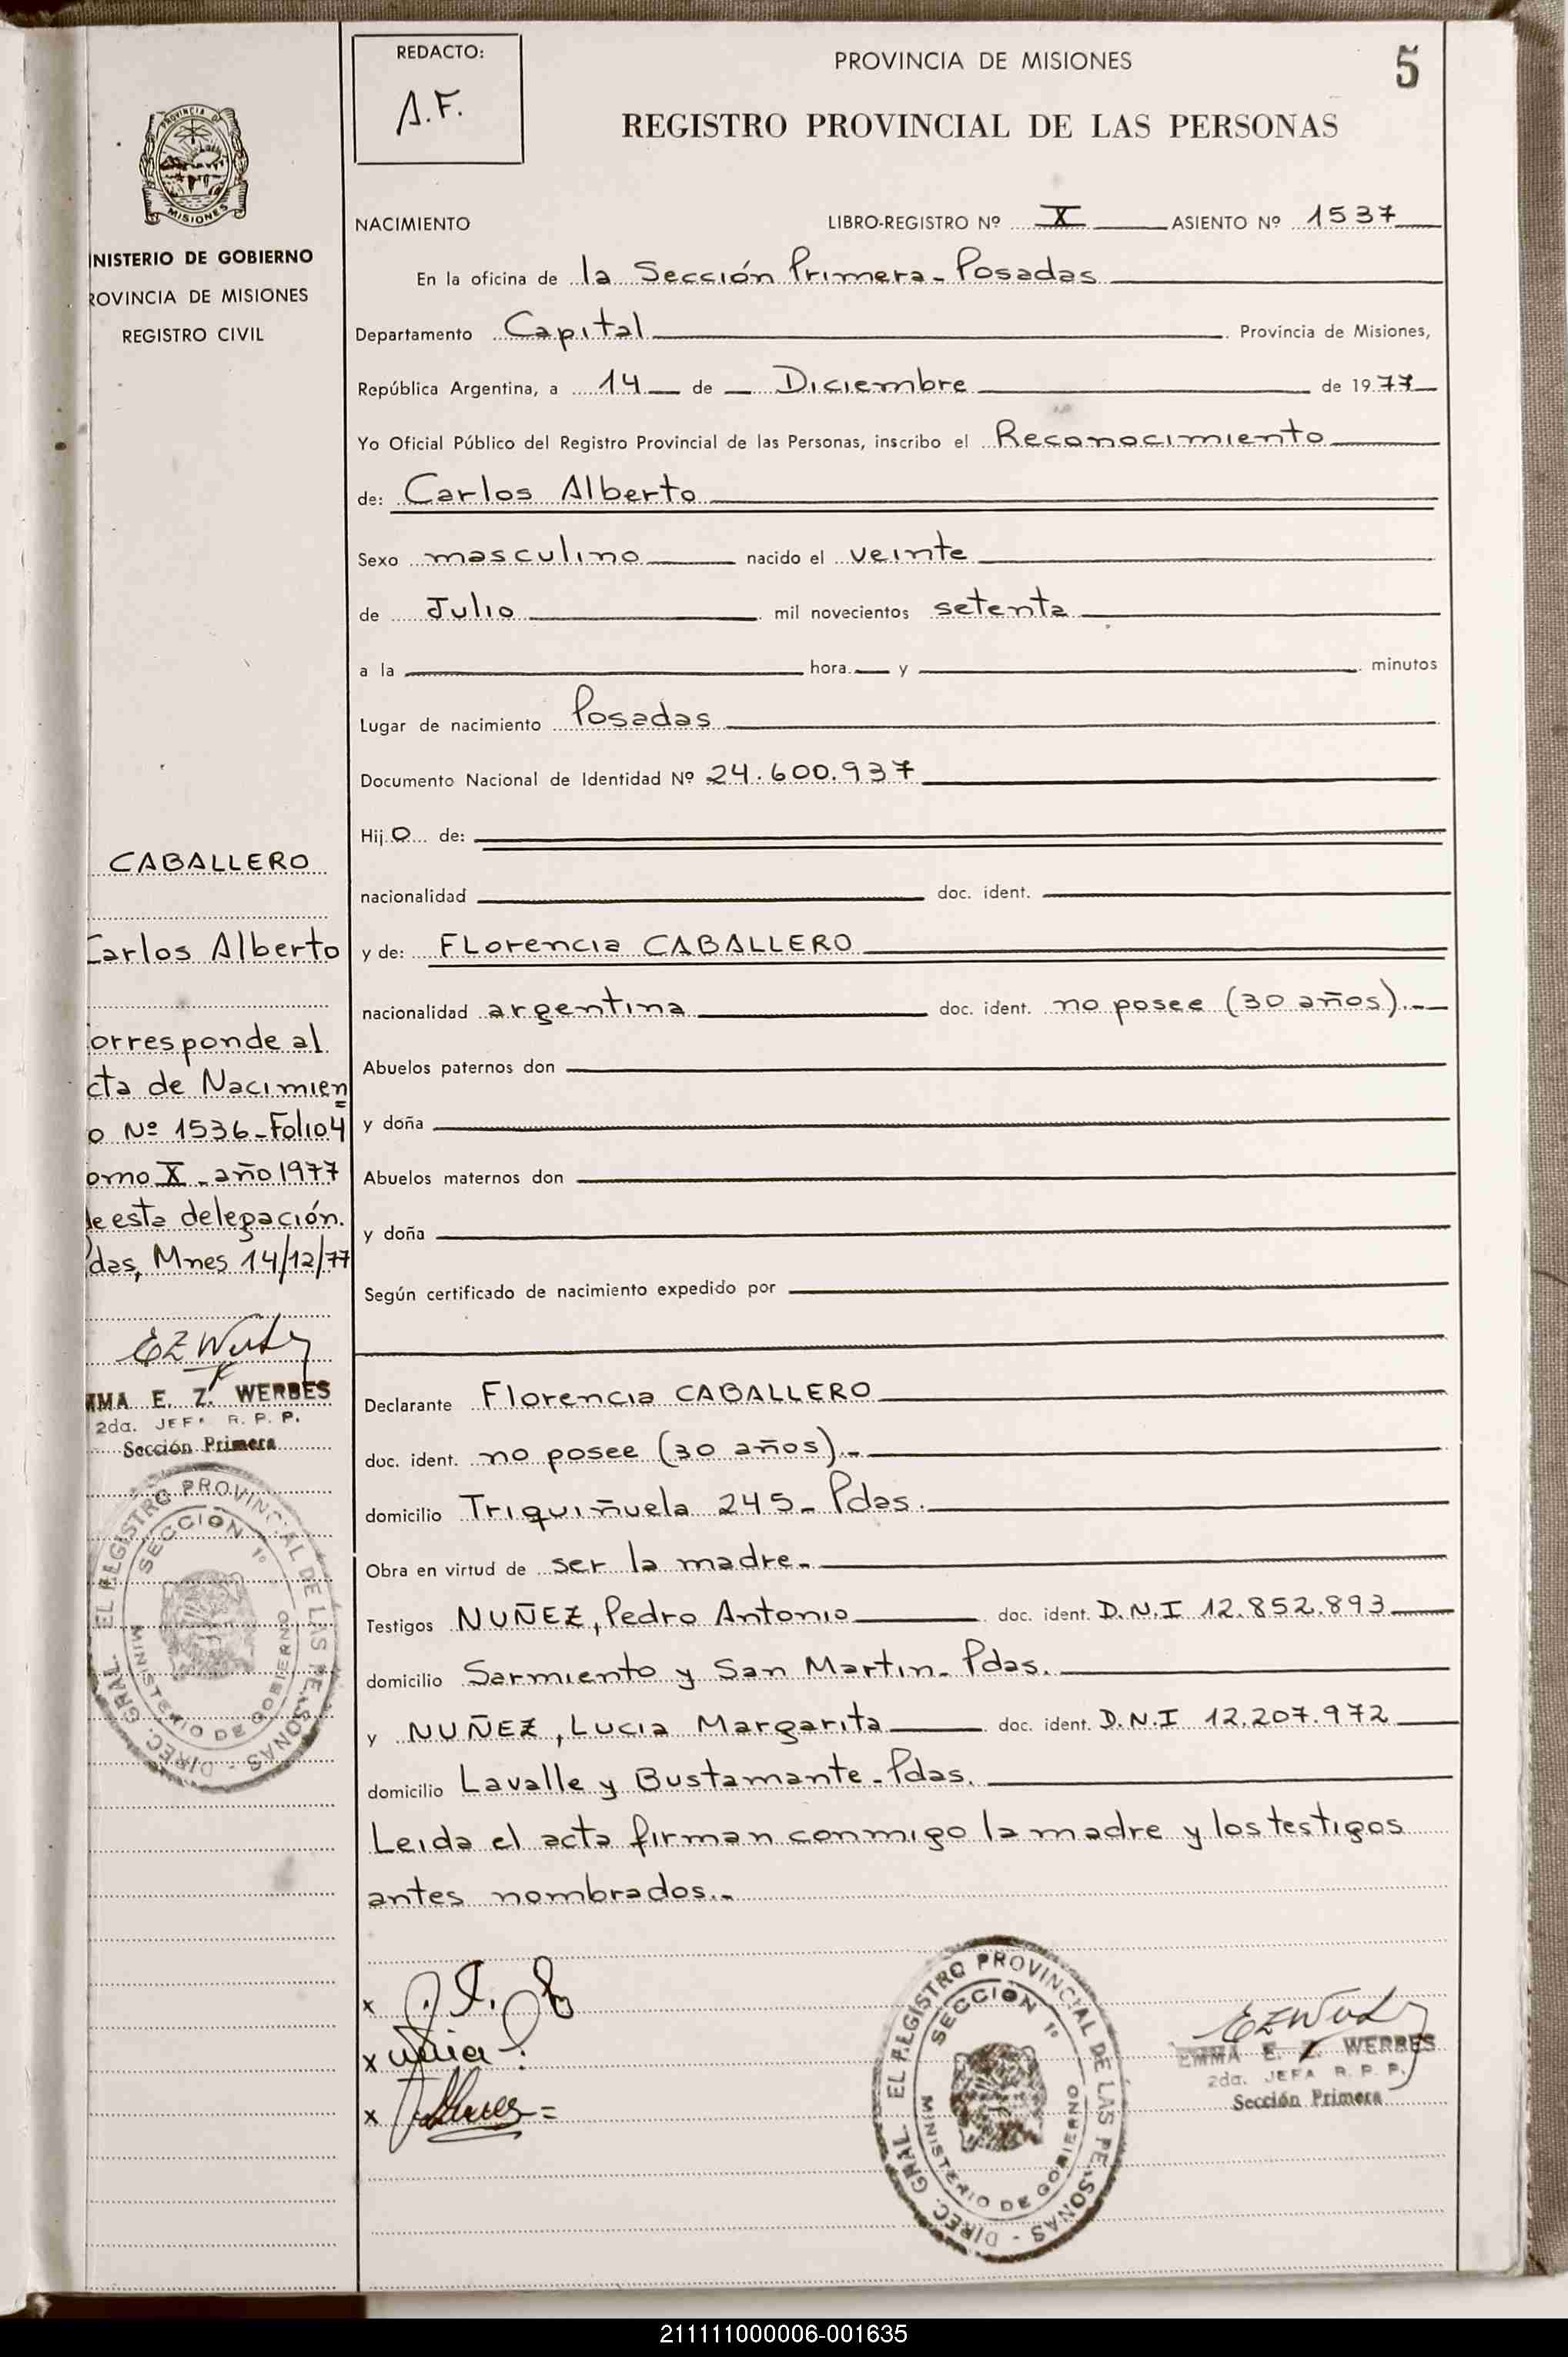 REDACTO:
A.F.
PROVINCIA DE MISIONES
5
REGISTRO PROVINCIAL DE LAS PERSONAS
PROVINCIA DE
MISIONES
NISTERIO DE GOBIERNO
ROVINCIA DE MISIONES
REGISTRO CIVIL
NACIMIENTO LIBRO-REGISTRO Nº X ASIENTO Nº 1537
En la oficina de la Sección Primera - Posadas
Departamento Capital Provincia de Misiones,
República Argentina, a 14 de Diciembre de 1977
Yo Oficial Público del Registro Provincial de las Personas, inscribo el Reconocimiento
de: Carlos Alberto
Sexo masculino nacido el veinte
de Julio mil novecientos setenta
a la hora y minutos
Lugar de nacimiento Posadas
Documento Nacional de Identidad Nº 24.600.937
Hijo de:
nacionalidad doc. ident.
y de: FLorencia CABALLERO
nacionalidad argentina doc. ident. no posee (30 años).-
Abuelos paternos don
y doña
Abuelos maternos don
y doña
Según certificado de nacimiento expedido por
Declarante Florencia CABALLERO
doc. ident. no posee (30 años).-
domicilio Triquiñuela 245 - Pdas.
Obra en virtud de ser la madre.-
Testigos NUÑEZ, Pedro Antonio doc. ident. D.N.I 12.852.893
domicilio Sarmiento y San Martin - Pdas.
y NUÑEZ, Lucia Margarita doc. ident. D.N.I 12.207.972
domicilio Lavalle y Bustamante - Pdas.
Leida el acta firman conmigo la madre y los testigos
antes nombrados.-
CABALLERO
Carlos Alberto
orresponde al
cta de Nacimien
o Nº 1536 - Folio 4
omo X - año 1977
de esta delegación.
das, Mnes 14/12/77
MMA E. Z. WERBES
2da. JEFA R. P. P.
Sección Primera
DIREC. GRAL. EL REGISTRO PROVINCIAL DE LAS PERSONAS
SECCION 1º
MINISTERIO DE GOBIERNO
x
x
x
DIREC. GRAL. EL REGISTRO PROVINCIAL DE LAS PERSONAS
SECCION 1º
MINISTERIO DE GOBIERNO
EMMA E. Z. WERBES
2da. JEFA R. P. P.
Sección Primera
211111000006-001635